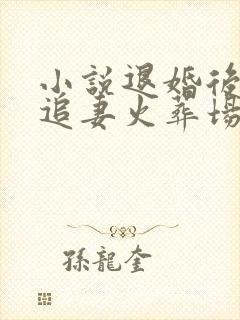 小説退婚後
追妻火葬場
孫龍奎